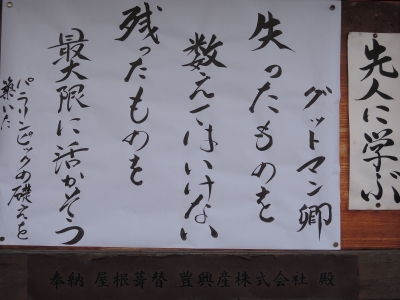 先人に学ぶ
グットマン卿
失ったものを
数えてはいけない
残ったものを
最大限に活かそう
パラリンピックの礎えを
築いた
奉納 屋根葺替 豊興産株式会社 殿